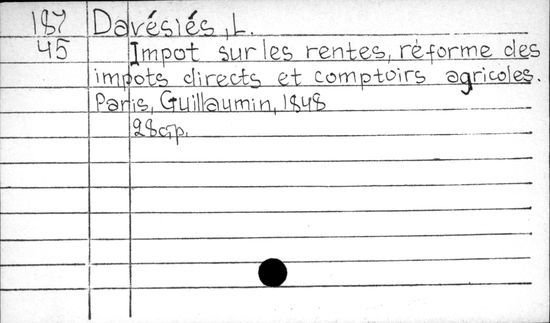 187 Davésiés, L.
45 Impot sur les rentes, réforme des
impots directs et comptoirs agricoles.
Paris, Guillaumin, 1848